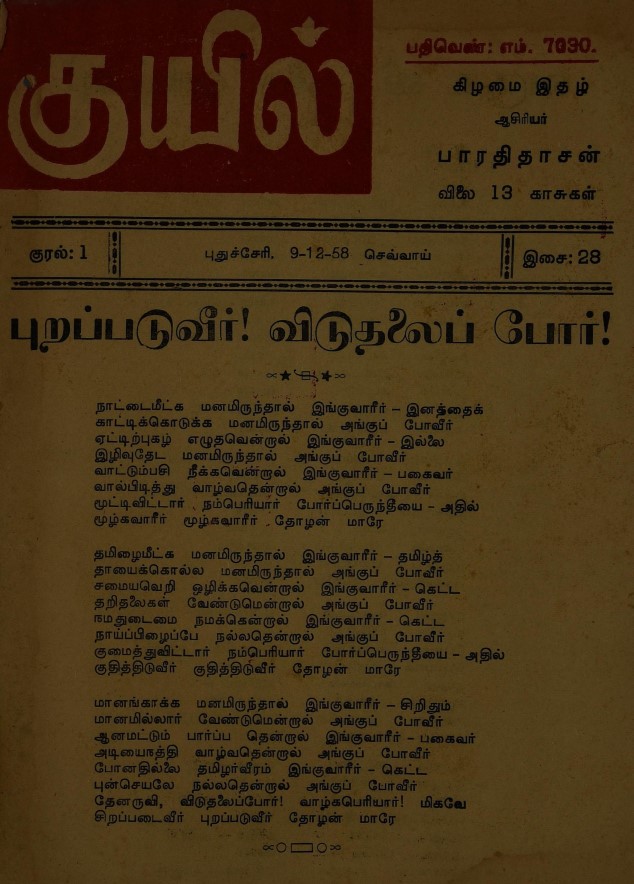 குயில்
பதிவெண்: எம். 7690.
கிழமை இதழ்
ஆசிரியர்
பாரதிதாசன்
விலை 13 காசுகள்
குரல்: 1
புதுச்சேரி. 9-12-58 செவ்வாய்
இசை: 28
புறப்படுவீர்! விடுதலைப் போர்!
நாட்டைமீட்க மனமிருந்தால் இங்குவாரீர் – இனத்தைக்
காட்டிக்கொடுக்க மனமிருந்தால் அங்குப் போவீர்
ஏட்டிற்புகழ் எழுதவென்றால் இங்குவாரீர் – இல்லை
இழிவுதேட மனமிருந்தால் அங்குப் போவீர்
வாட்டும்பசி நீக்கவென்றால் இங்குவாரீர் – பகைவர்
வால்பிடித்து வாழ்வதென்றால் அங்குப் போவீர்
மூட்டிவிட்டார் நம்பெரியார் போர்ப்பெருந்தீயை – அதில்
மூழ்கவாரீர் மூழ்கவாரீர் தோழன் மாரே
தமிழைமீட்க மனமிருந்தால் இங்குவாரீர் – தமிழ்த்
தாயைக்கொல்ல மனமிருந்தால் அங்குப் போவீர்
சமையவெறி ஒழிக்கவென்றால் இங்குவாரீர் – கெட்ட
தறிதலைகள் வேண்டுமென்றால் அங்குப் போவீர்
நமதுடைமை நமக்கென்றால் இங்குவாரீர் – கெட்ட
நாய்ப்பிழைப்பே நல்லதென்றால் அங்குப் போவீர்
குமைத்துவிட்டார் நம்பெரியார் போர்ப்பெருந்தீயை – அதில்
குதித்திடுவீர் குதித்திடுவீர் தோழன் மாரே
மானங்காக்க மனமிருந்தால் இங்குவாரீர் – சிறிதும்
மானமில்லார் வேண்டுமென்றால் அங்குப் போவீர்
ஆனமட்டும் பார்ப்ப தென்றால் இங்குவாரீர் – பகைவர்
அடியைநத்தி வாழ்வதென்றால் அங்குப் போவீர்
போனதில்லை தமிழர்வீரம் இங்குவாரீர் – கெட்ட
புன்செயலே நல்லதென்றால் அங்குப் போவீர்
தேனருவி, விடுதலைப்போர்! வாழ்கபெரியார்! மிகவே
சிறப்படைவீர் புறப்படுவீர் தோழன் மாரே